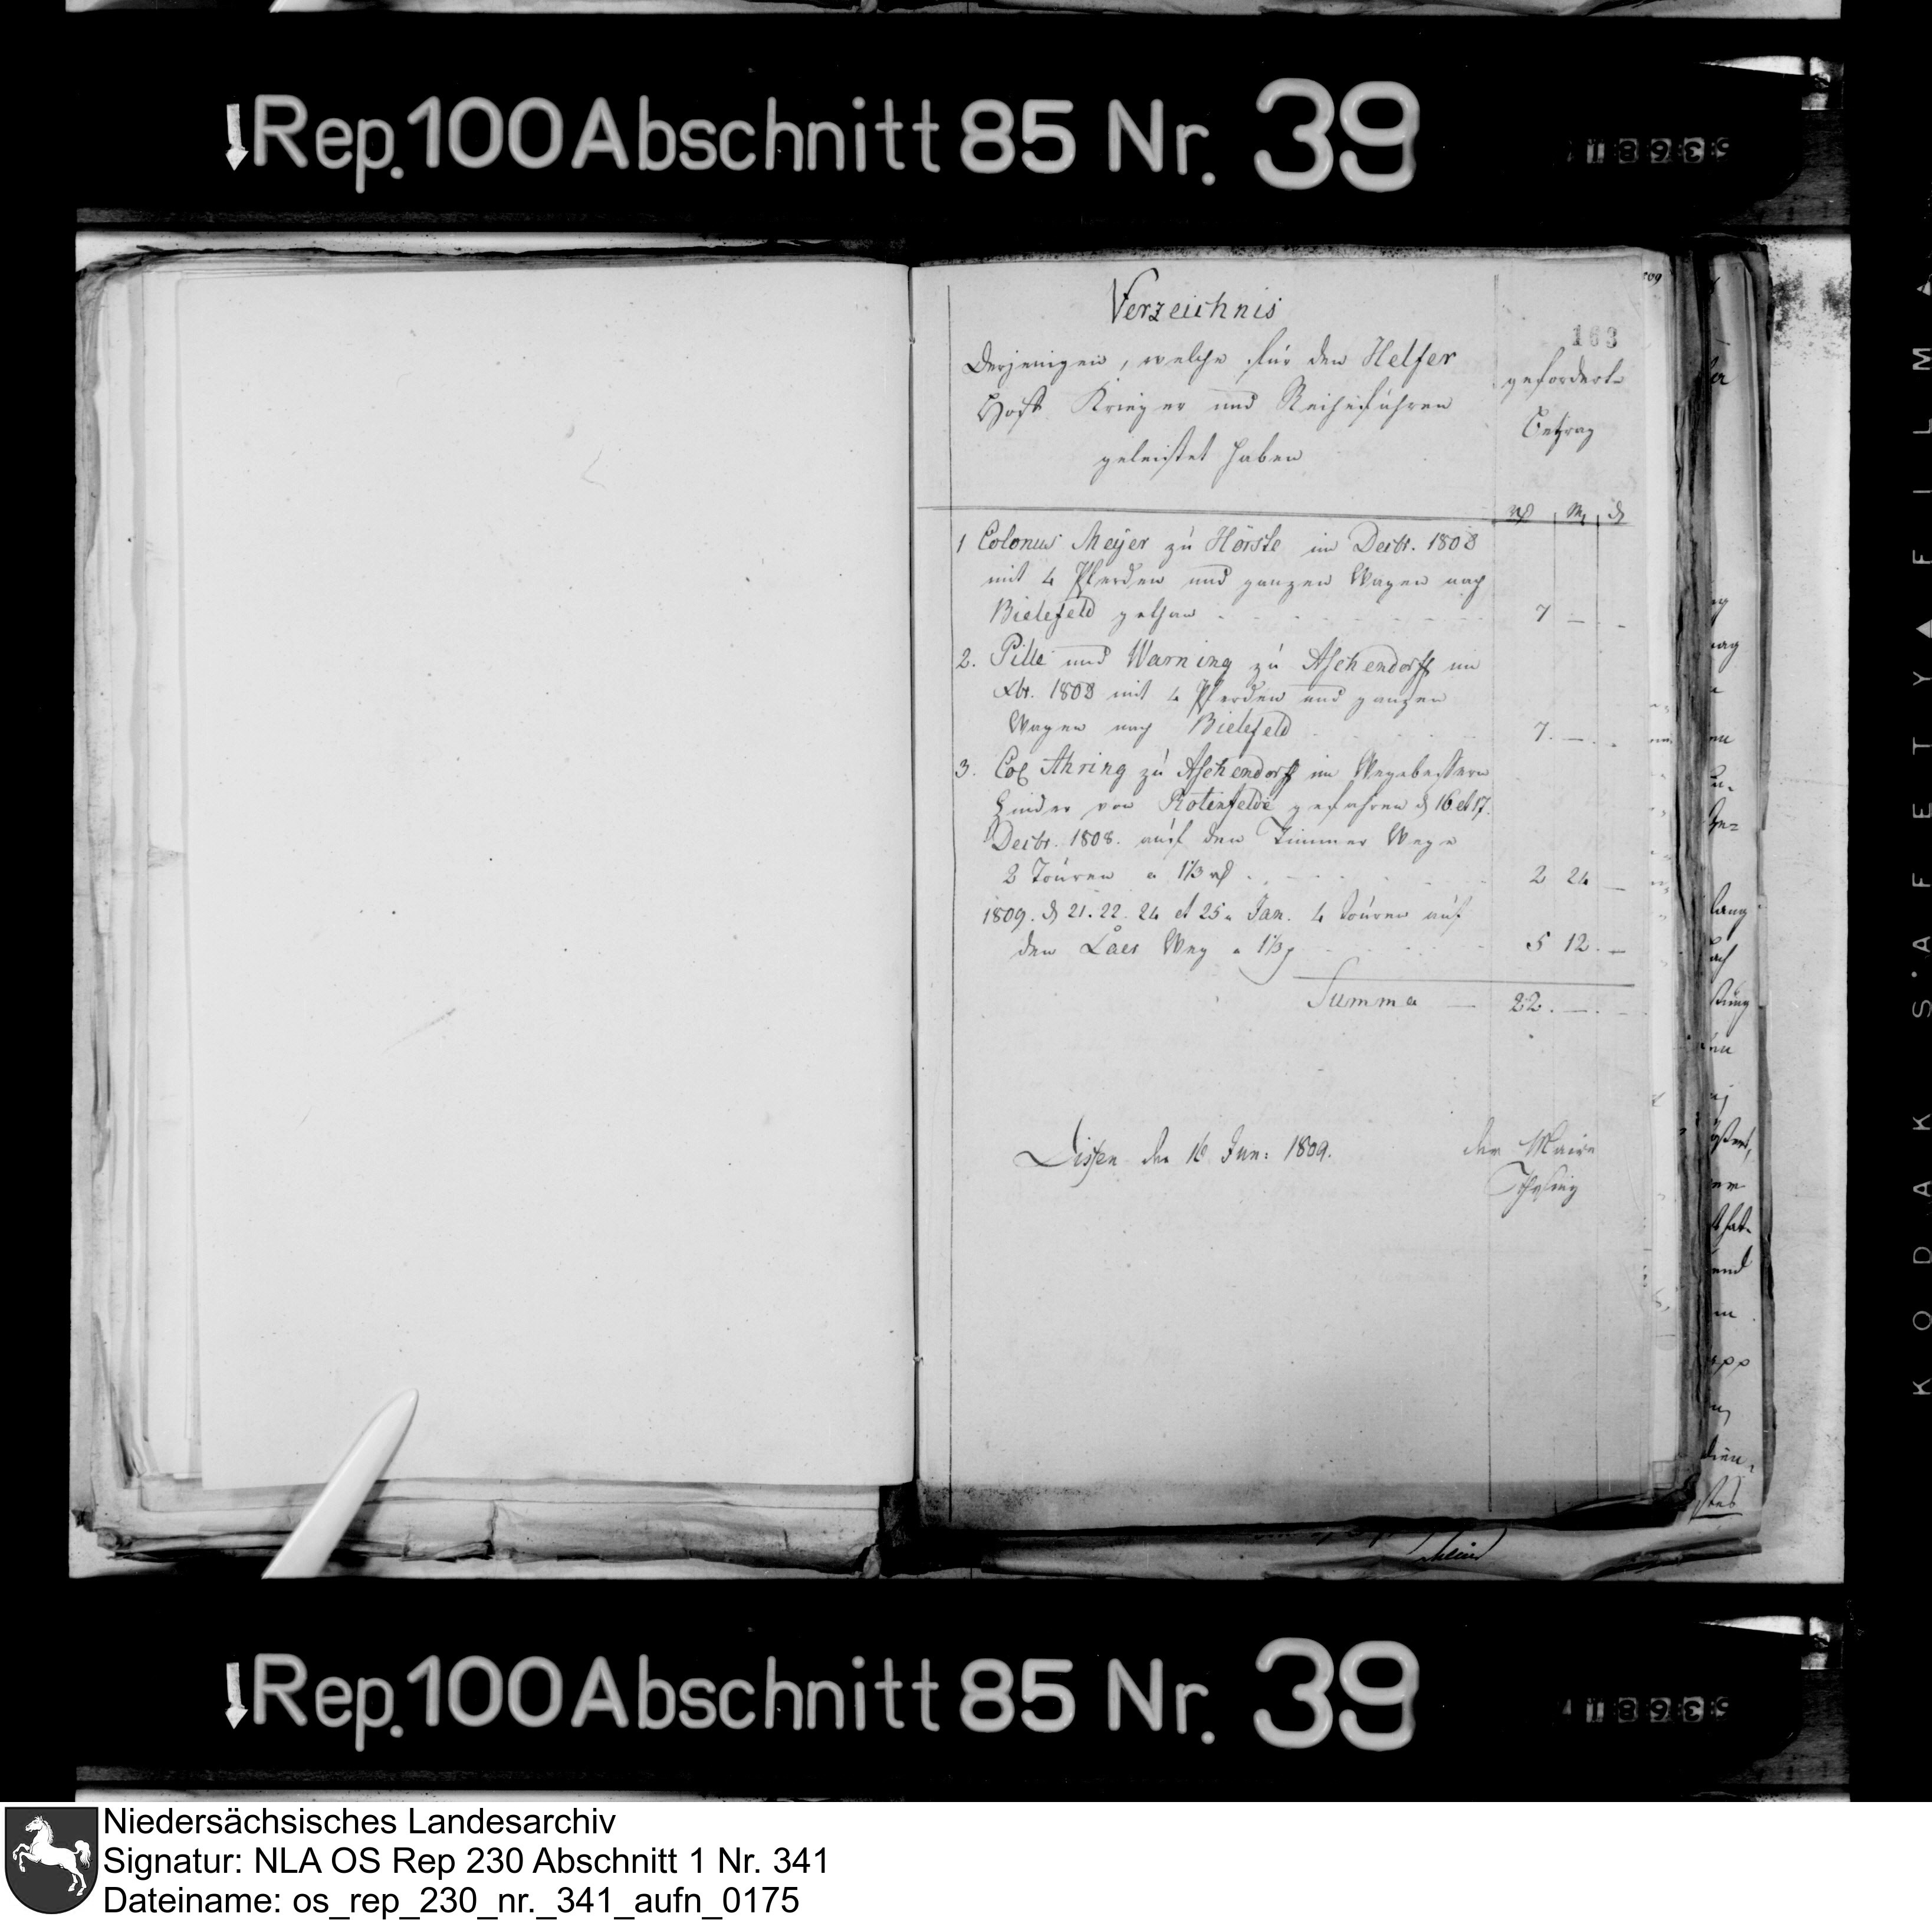 Rep. 100 Abschnitt 85 Nr. 39
163
Verzeichnis
Derjenigen, welche für den Helfer
Krieger und Reihefuhren
geleistet haben
geforderte
Betrag
1 Colonus Meyer zu Hörste im Decbr. 1808
mit 4 Pferden und ganzen Wagen nach
Bielefeld gethan - - - 7 — -
2. Pille und Warning zu Aschendorff im
Xbr. 1808 mit 4 Pferden und ganzen
Wagen nach Bielefeld 7. —
3. Col Ahring zu Aschendorff im Wegebessern
von Rotenfelde gefahren d 16. et 17.
Decbr. 1808. auf den Timmer Wege
2 Touren a 1⅓ rh 2 24 —
1809. d 21. 22. 24 et 25. Jan. 4 Touren auf
den Laer Weg a 1⅓ 5 12. —
Summa — 22. —. -
Dissen den 16 Jun: 1809.
der Maire
KODAK S'AFETY FILM
Rep. 100 Abschnitt 85 Nr. 39
Niedersächsisches Landesarchiv
Signatur: NLA OS Rep 230 Abschnitt 1 Nr. 341
Dateiname: os_rep_230_nr._341_aufn_0175